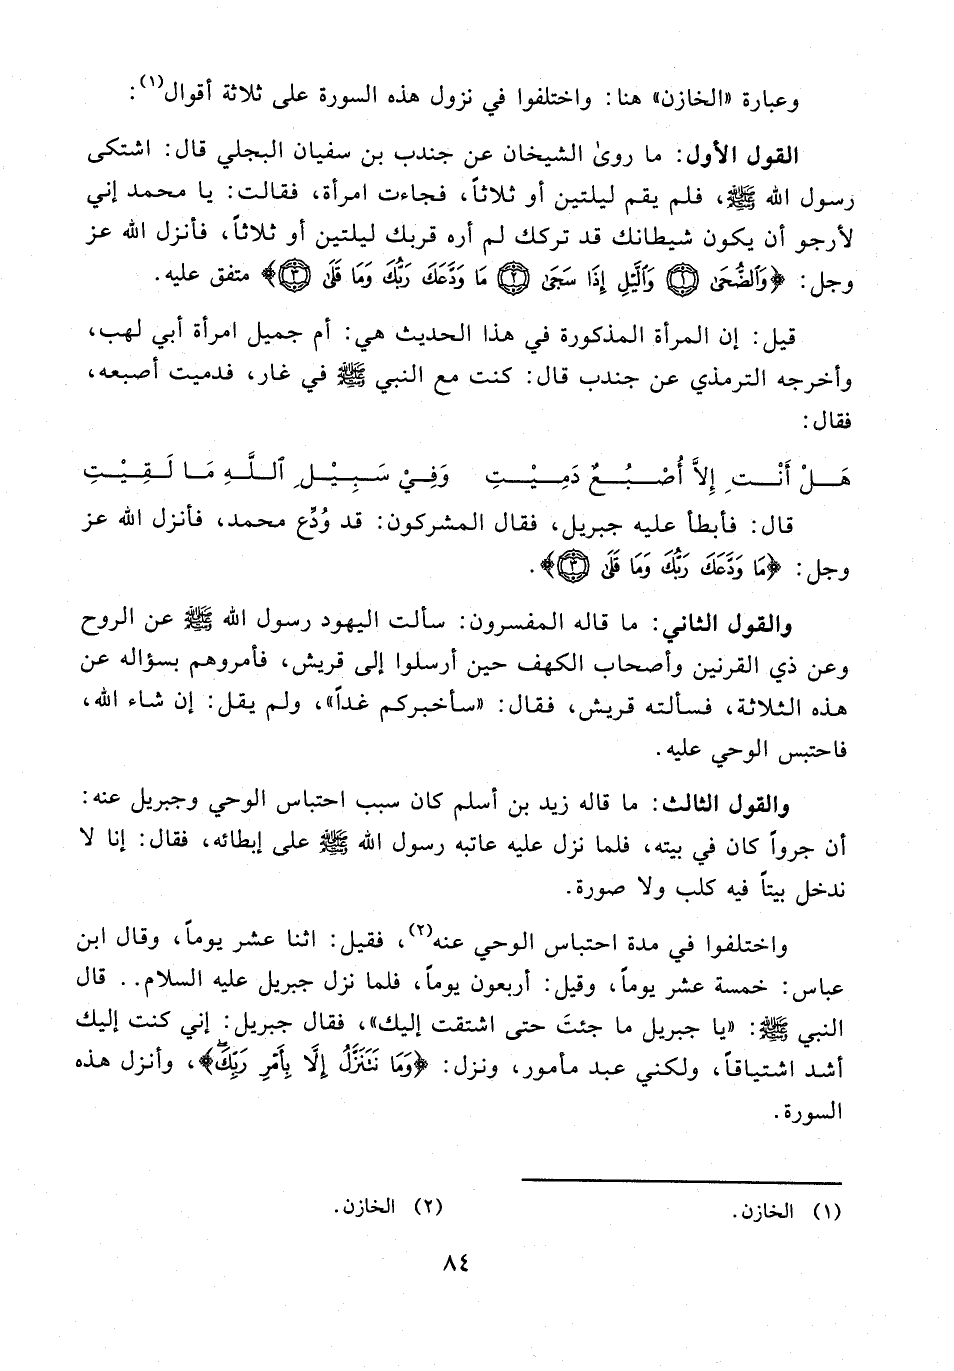 وعبارة «الخازن» هنا: واختلفوا في نزول هذه السورة على ثلاثة أقوال(١):
القول الأول: ما روىٰ الشيخان عن جندب بن سفيان البجلي قال: اشتكى
رسول الله ﷺ، فلم يقم ليلتين أو ثلاثاً، فجاءت امرأة، فقالت: يا محمد إني
لأرجو أن يكون شيطانك قد تركك لم أره قربك ليلتين أو ثلاثاً، فأنزل الله عز
وجل: ﴿وَٱلضُّحَىٰ ۝١ وَٱلَّيْلِ إِذَا سَجَىٰ ۝٢ مَا وَدَّعَكَ رَبُّكَ وَمَا قَلَىٰ ۝٣﴾ متفق عليه.
قيل: إن المرأة المذكورة في هذا الحديث هي: أم جميل امرأة أبي لهب،
وأخرجه الترمذي عن جندب قال: كنت مع النبي ﷺ في غار، فدميت أصبعه،
فقال:
هَـلْ أَنْـتِ إِلاَّ أُصْـبُـعٌ دَمِـيْـتِ وَفِـيْ سَـبِـيْـلِ ٱلـلَّـهِ مَـا لَـقِـيْـتِ
قال: فأبطأ عليه جبريل، فقال المشركون: قد وُدِّع محمد، فأنزل الله عز
وجل: ﴿مَا وَدَّعَكَ رَبُّكَ وَمَا قَلَىٰ ۝٣﴾.
والقول الثاني: ما قاله المفسرون: سألت اليهود رسول الله ﷺ عن الروح
وعن ذي القرنين وأصحاب الكهف حين أرسلوا إلى قريش، فأمروهم بسؤاله عن
هذه الثلاثة، فسألته قريش، فقال: «سأخبركم غداً»، ولم يقل: إن شاء الله،
فاحتبس الوحي عليه.
والقول الثالث: ما قاله زيد بن أسلم كان سبب احتباس الوحي وجبريل عنه:
أن جرواً كان في بيته، فلما نزل عليه عاتبه رسول الله ﷺ على إبطائه، فقال: إنا لا
ندخل بيتاً فيه كلب ولا صورة.
واختلفوا في مدة احتباس الوحي عنه(٢)، فقيل: اثنا عشر يوماً، وقال ابن
عباس: خمسة عشر يوماً، وقيل: أربعون يوماً، فلما نزل جبريل عليه السلام.. قال
النبي ﷺ: «يا جبريل ما جئتَ حتى اشتقت إليك»، فقال جبريل: إني كنت إليك
أشد اشتياقاً، ولكني عبد مأمور، ونزل: ﴿وَمَا نَتَنَزَّلُ إِلَّا بِأَمْرِ رَبِّكَ﴾، وأنزل هذه
السورة.
(١) الخازن. (٢) الخازن.
٨٤